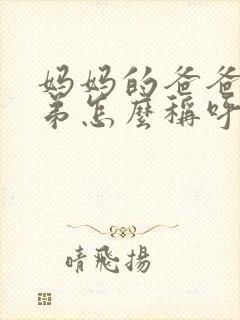 妈妈的爸爸
弟怎麼稱呼
晴飛揚